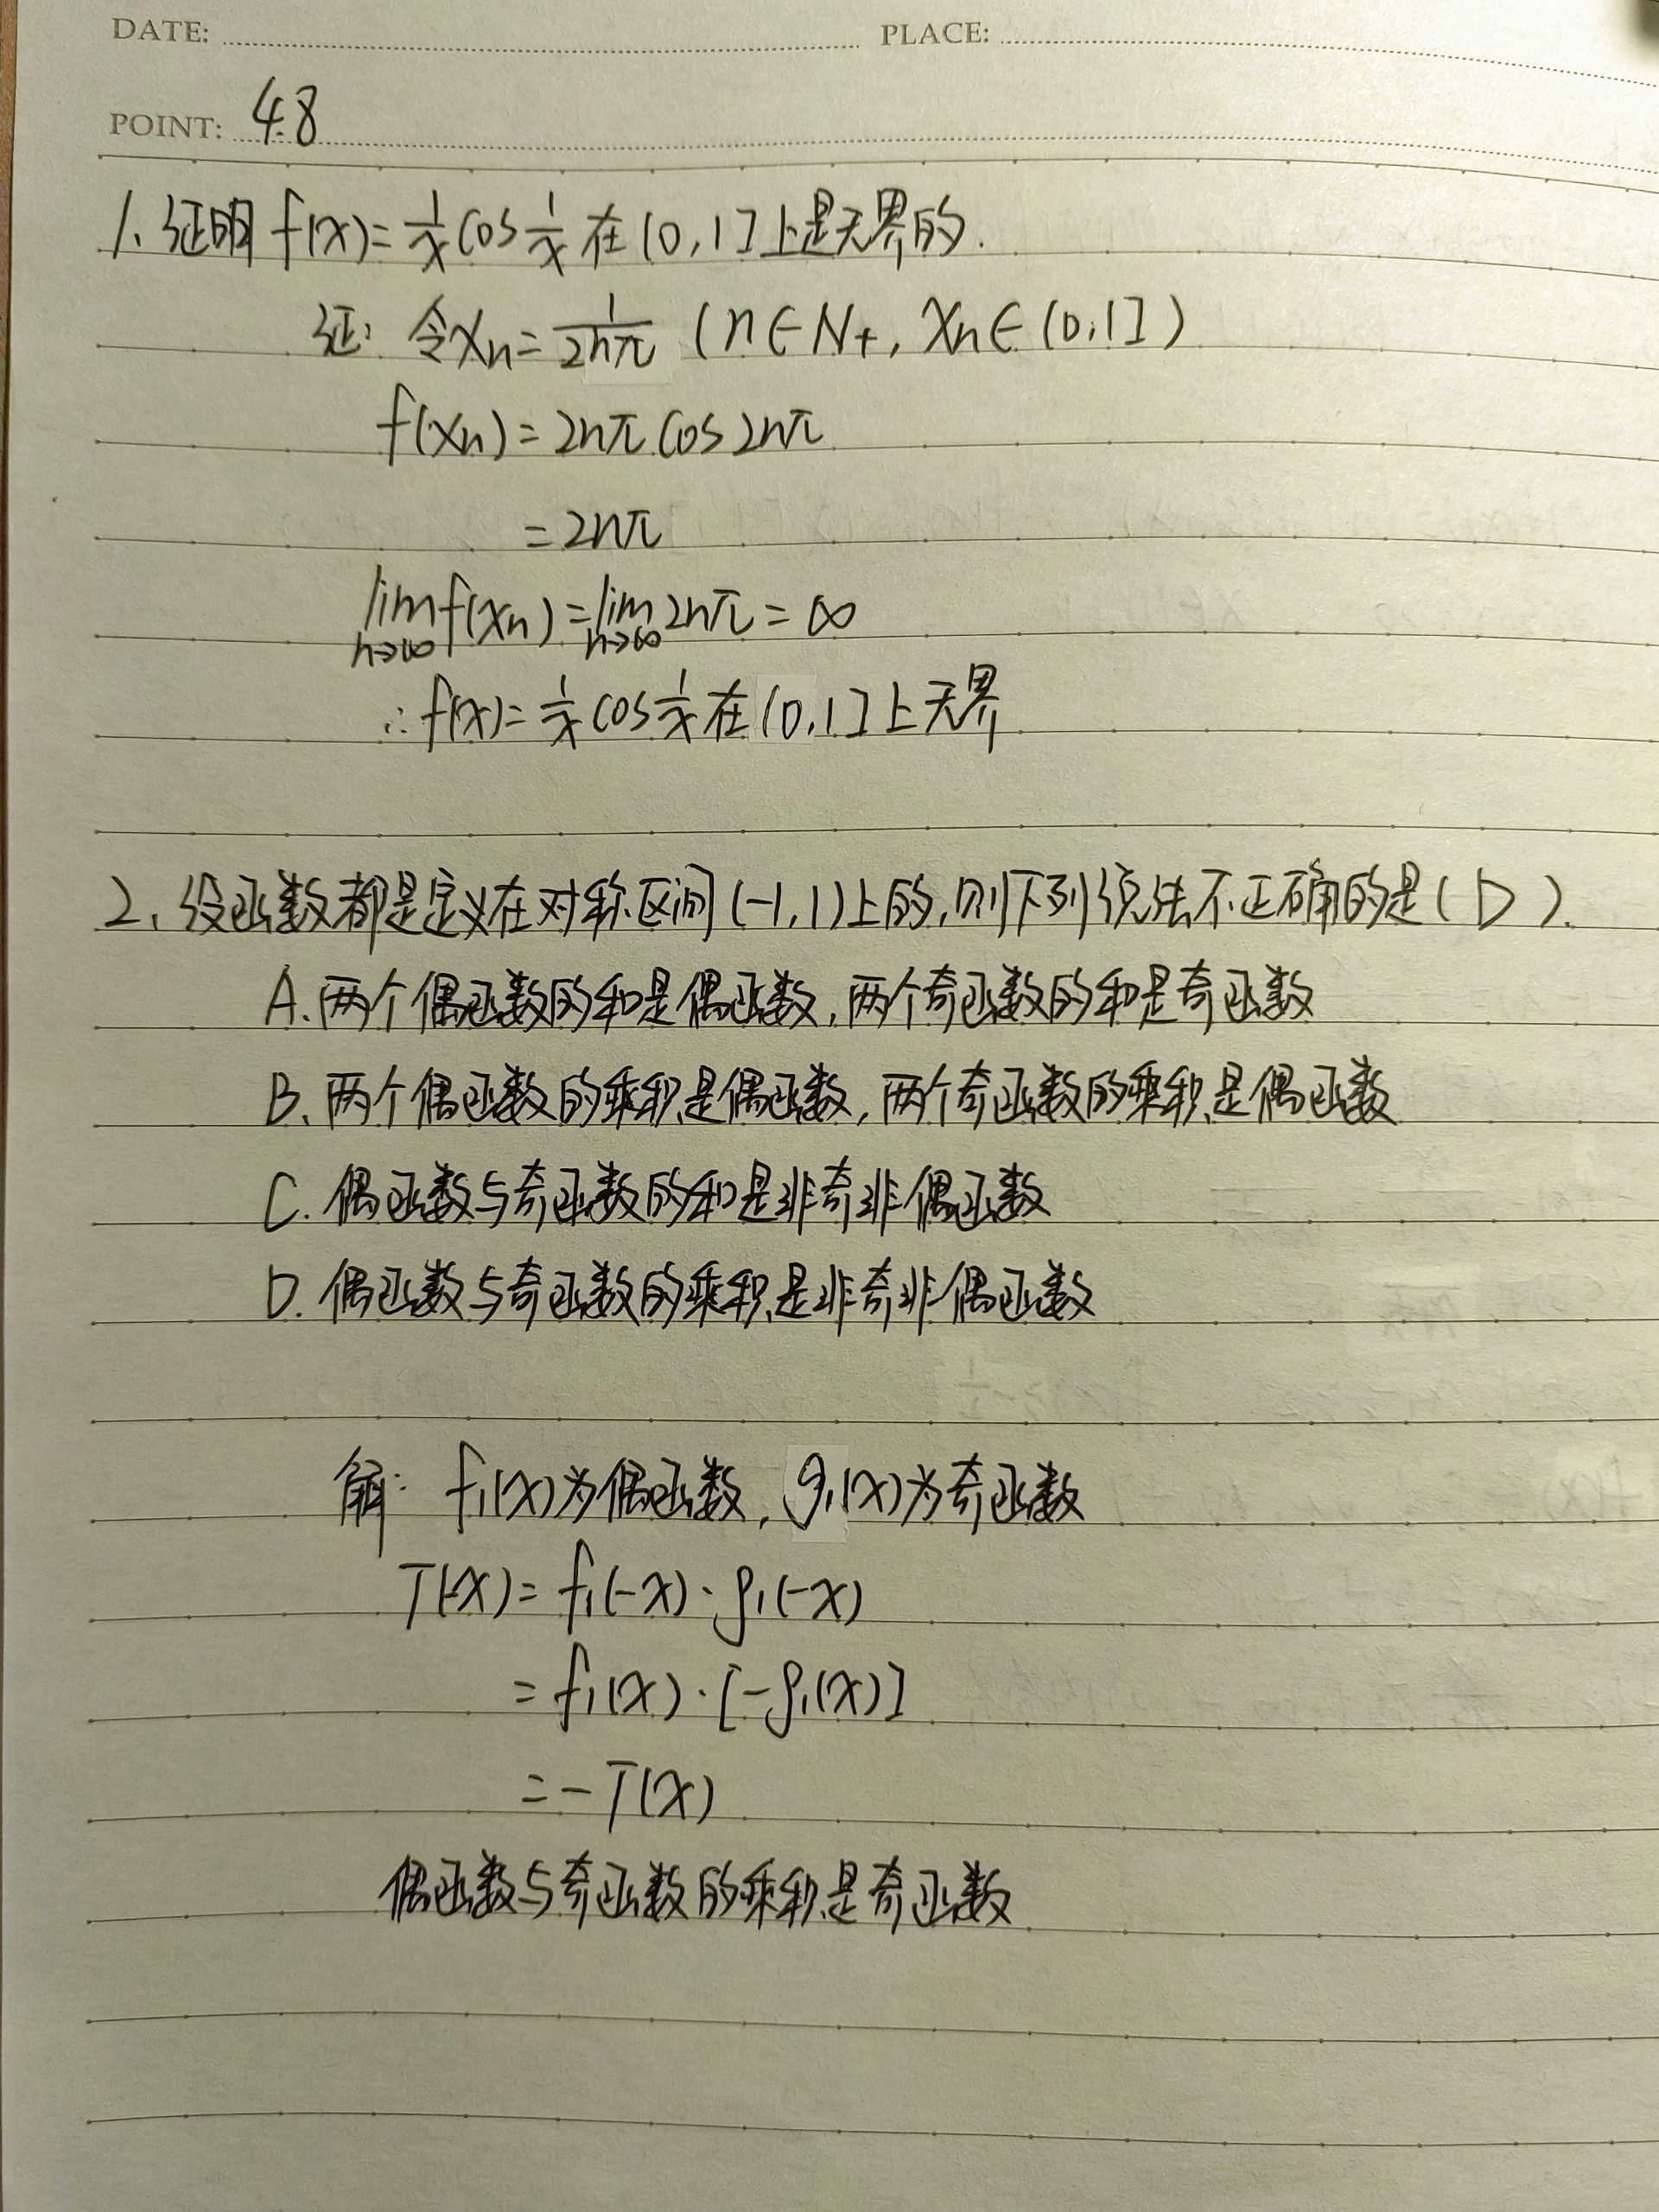 DATE: PLACE:
POINT: 48
1、证明 f(x)=1/x cos 1/x 在(0,1]上是无界的.
证: 令xn=1/2nπ (n∈N+, xn∈(0,1])
f(xn)=2nπ cos 2nπ
=2nπ
lim n→∞ f(xn)=lim n→∞ 2nπ=∞
∴f(x)=1/x cos 1/x 在(0,1]上无界
2、设函数都是定义在对称区间(-1,1)上的,则下列说法不正确的是(D).
A.两个偶函数的和是偶函数,两个奇函数的和是奇函数
B、两个偶函数的乘积是偶函数,两个奇函数的乘积是偶函数
C.偶函数与奇函数的和是非奇非偶函数
D.偶函数与奇函数的乘积是非奇非偶函数
解: f₁(x)为偶函数,g₁(x)为奇函数
T(-x)=f₁(-x)·g₁(-x)
=f₁(x)·[-g₁(x)]
=-T(x)
偶函数与奇函数的乘积是奇函数